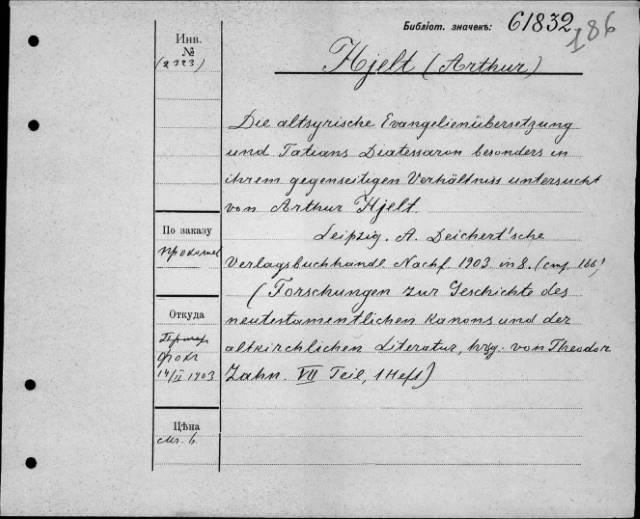 Библіот. значекъ: 61832
186
Инв.
№
(2223)
Hjelt (Arthur)
Die altsyrische Evangelienübersetzung
und Tatians Diatessaron besonders in
ihrem gegenseitigen Verhältniss untersucht
von Arthur Hjelt.
Leipzig. A. Deichert'sche
Verlagsbuchhandl. Nachf. 1903. in 8. (стр. 166)
(Forschungen zur Geschichte des
neutestamentlichen Kanons und der
altkirchlichen Literatur, hrsg. von Theodor
Zahn. VII Teil, 1 Heft)
По заказу
Откуда
14/II 1903
Цѣна
см. 6